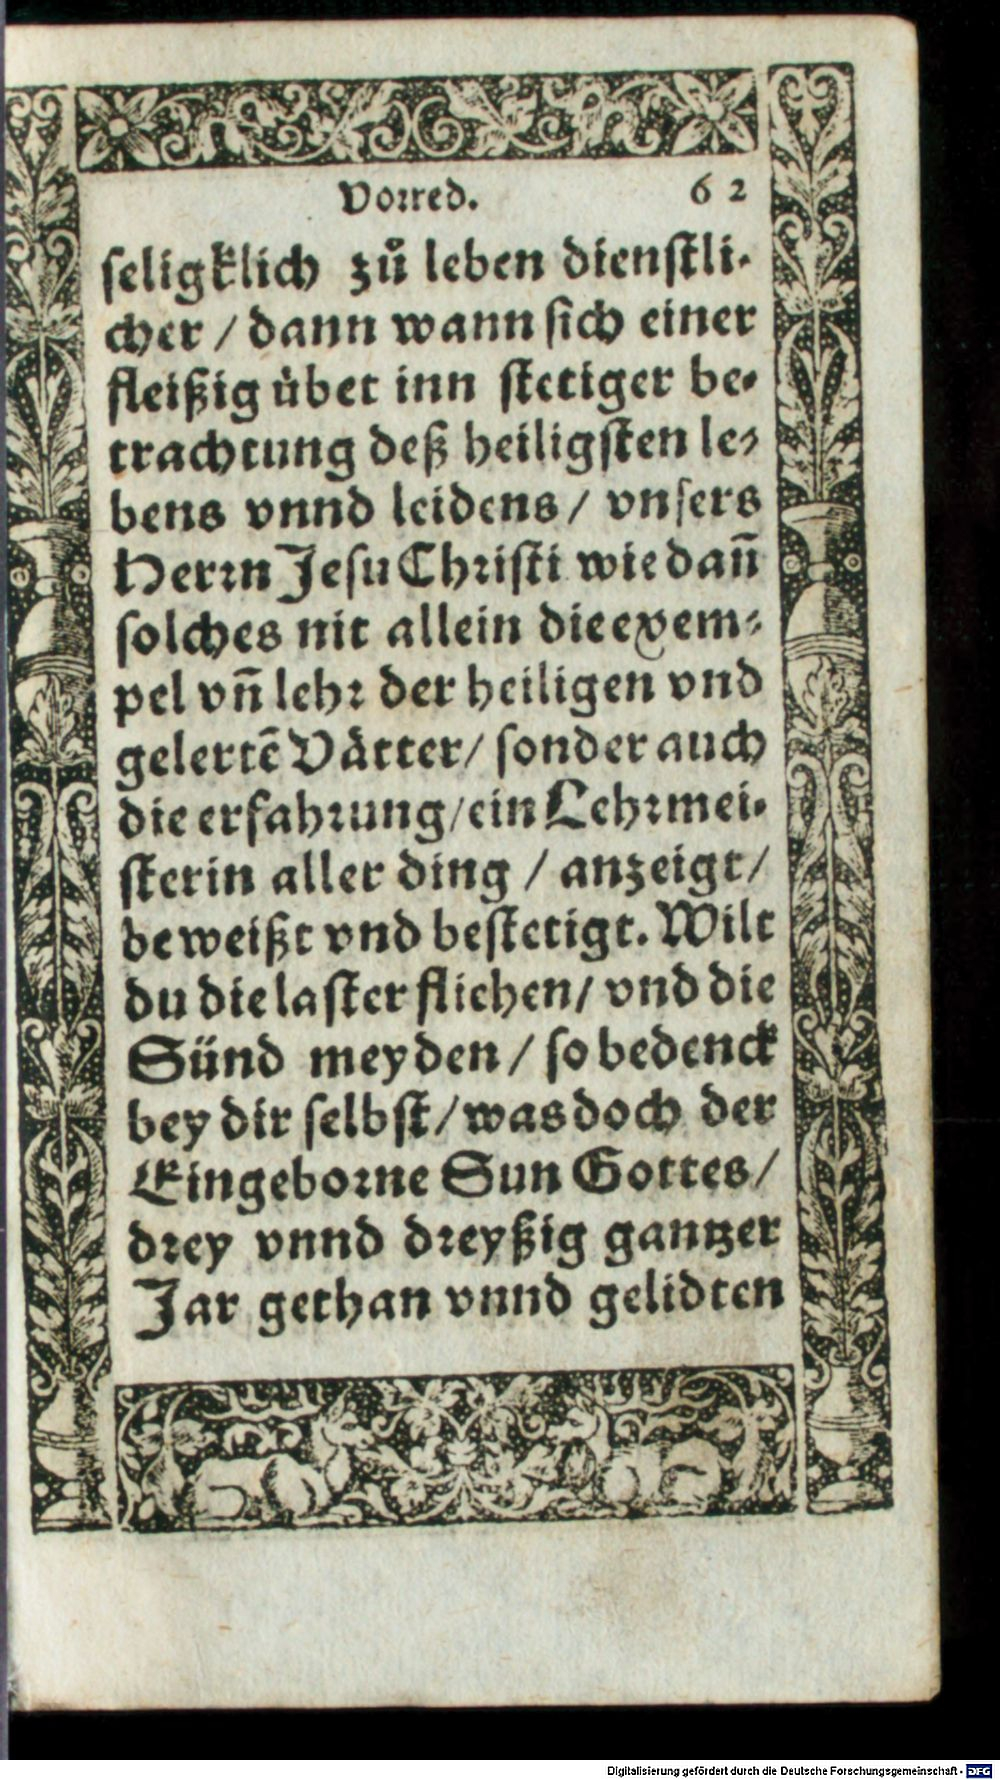 Vorred. 62
seligklich zů leben dienstli-
cher / dann wann sich einer
fleißig übet inn stetiger be-
trachtung deß heiligsten le-
bens vnnd leidens / vnsers
Herrn Jesu Christi wie dañ
solches nit allein die exem-
pel vñ lehr der heiligen vnd
gelertẽ Vätter / sonder auch
die erfahrung / ein Lehrmei-
sterin aller ding / anzeigt /
beweißt vnd bestetigt. Wilt
du die laster fliehen / vnd die
Sünd meyden / so bedenck
bey dir selbst / was doch der
Eingeborne Sun Gottes /
drey vnnd dreyßig gantzer
Jar gethan vnnd gelidten
Digitalisierung gefördert durch die Deutsche Forschungsgemeinschaft - DFG